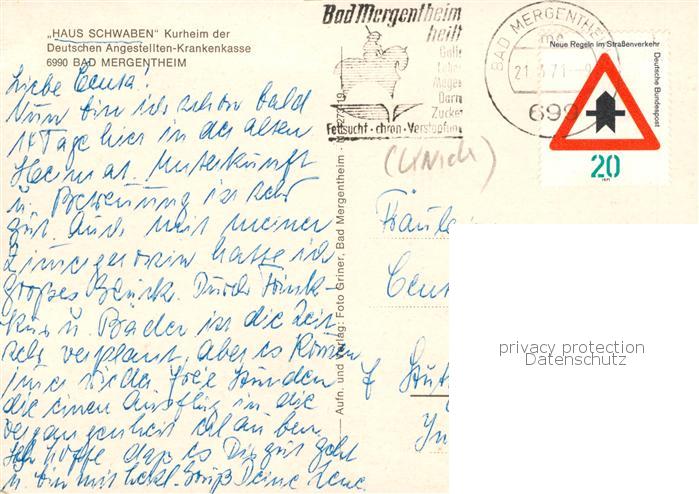 „HAUS SCHWABEN" Kurheim der
Deutschen Angestellten-Krankenkasse
6990 BAD MERGENTHEIM
Liebe Centa!
Nun bin ich schon bald
14 Tage hier in der alten
Heimat. Unterkunft
u. Betreuung ist sehr
gut. Auch mit meiner
Zimmergenossin hatte ich
großes Glück. Durch Trink-
kur u. Bäder ist die Zeit
sehr verplant, aber es kommen
immer wieder freie Stunden
die einen Ausflug in die
Vergangenheit erlauben.
Ich hoffe, daß es Dir gut geht
u. bin mit herzl. Gruß Deine
Aufn. und Verlag: Foto Griner, Bad Mergentheim
Bad Mergentheim
heilt
Galle
Leber
Magen
Darm
Zucker
Fettsucht · chron · Verstopfung
BAD MERGENTHE
21. 71
699
Neue Regeln im Straßenverkehr
Deutsche Bundespost
20
1971
Fräule
Cent
privacy protection
Datenschutz